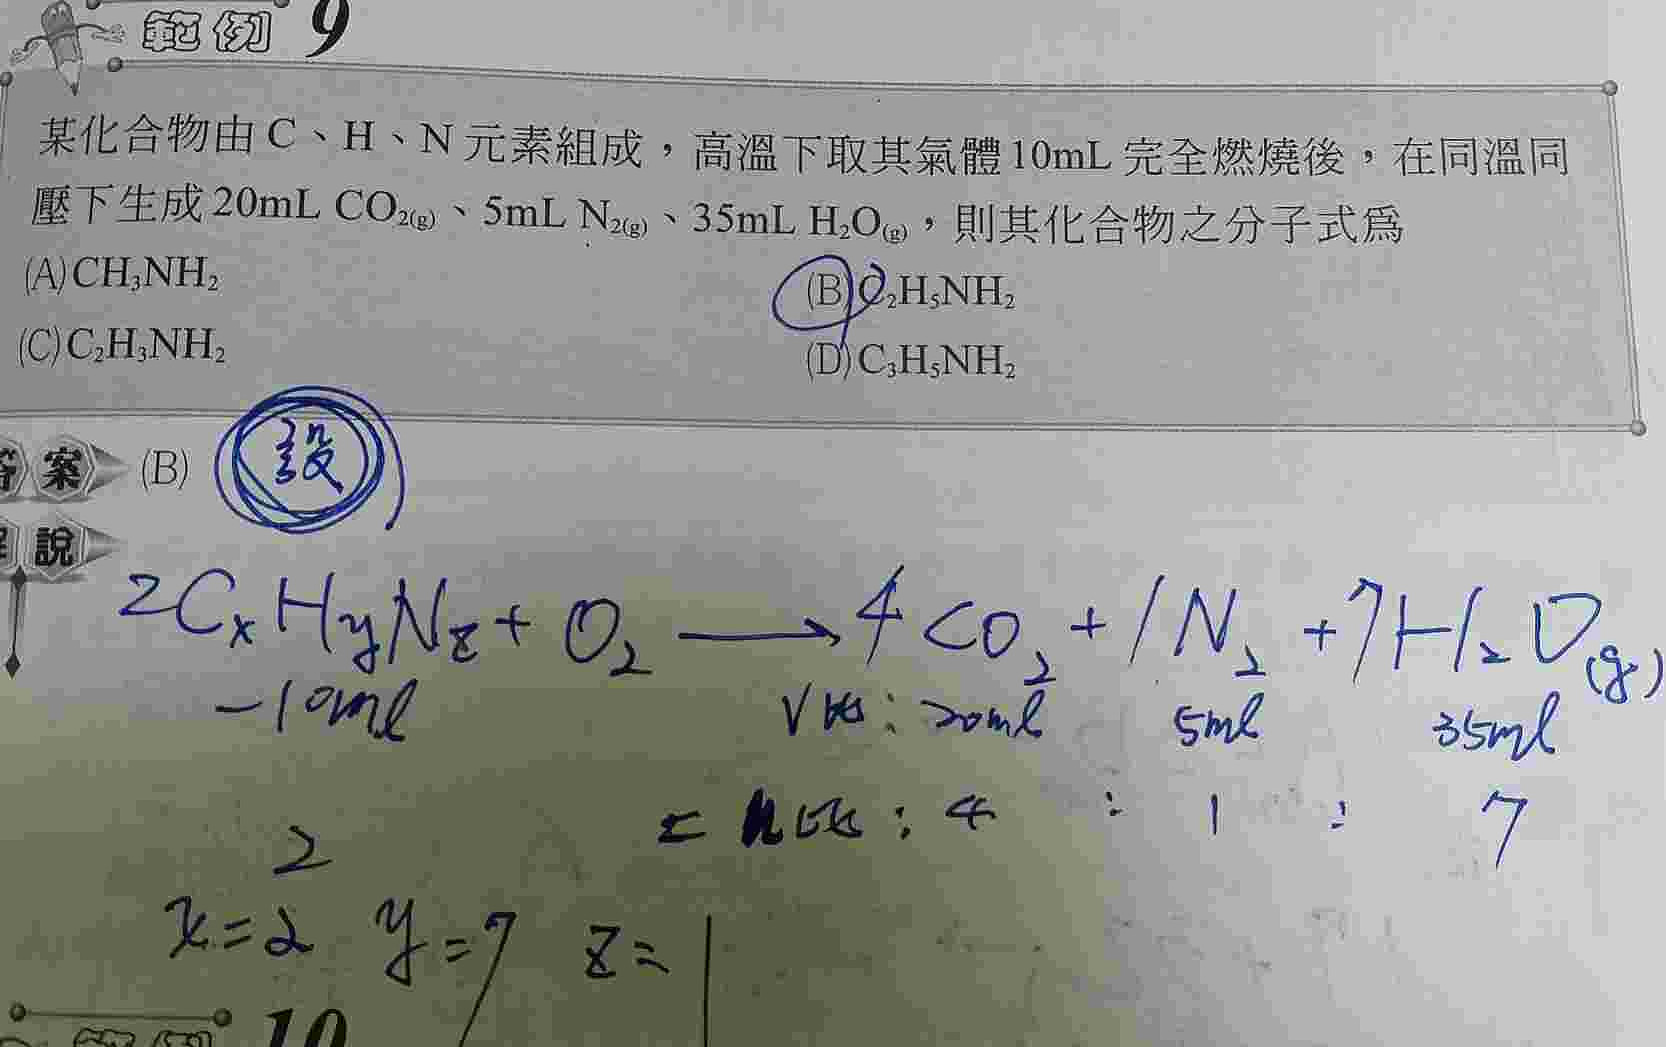 範例 9
某化合物由 C、H、N 元素組成，高溫下取其氣體 10mL 完全燃燒後，在同溫同
壓下生成 20mL CO₂(g)、5mL N₂(g)、35mL H₂O(g)，則其化合物之分子式為
(A) CH₃NH₂ (B) C₂H₅NH₂
(C) C₂H₃NH₂ (D) C₃H₅NH₂
答案 (B) 設
解說
2CxHyNz + O₂ → 4CO₂ + 1N₂ + 7H₂O(g)
-10ml V比: 20ml 5ml 35ml
= n比: 4 : 1 : 7
2
x=2 y=7 z=1
範例 10